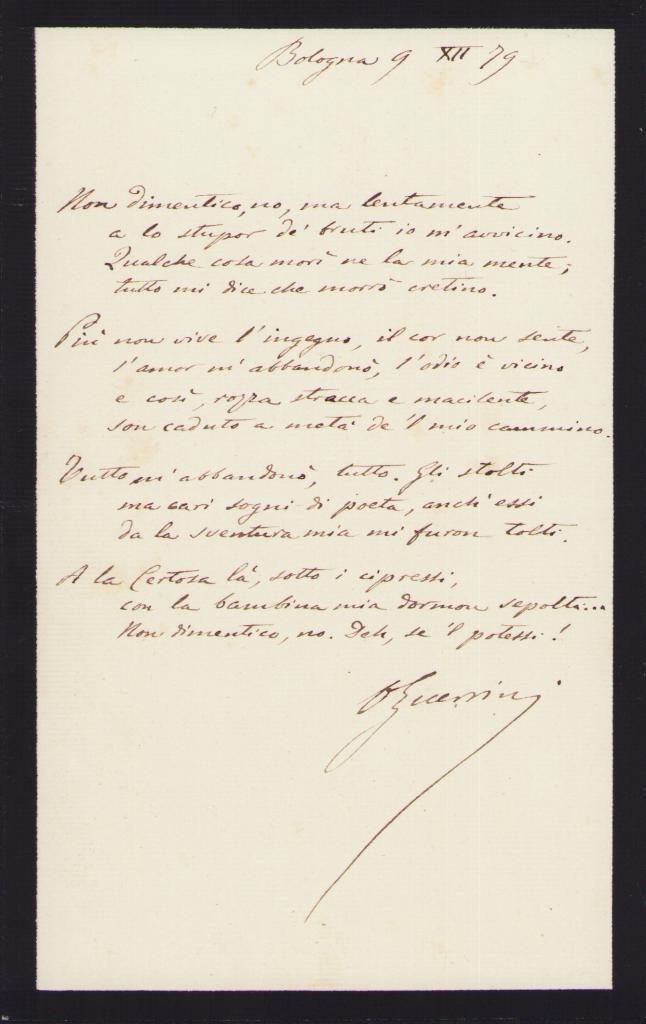 Bologna 9 XII 79
Non dimentico, no, ma lentamente
a lo stupor de' bruti io m'avvicino.
Qualche cosa morì ne la mia mente;
tutto mi dice che morrò cretino.
Più non vive l'ingegno, il cor non sente,
l'amor m'abbandonò, l'odio è vicino
e così, rozza stracca e macilente,
son caduto a metà de 'l mio cammino.
Tutto m'abbandonò, tutto. Gli stolti
ma cari sogni di poeta, anch'essi
da la sventura mia mi furon tolti.
A la Certosa là, sotto i cipressi,
con la bambina mia dormon sepolti...
Non dimentico, no. Deh, se 'l potessi!
OGuerrini